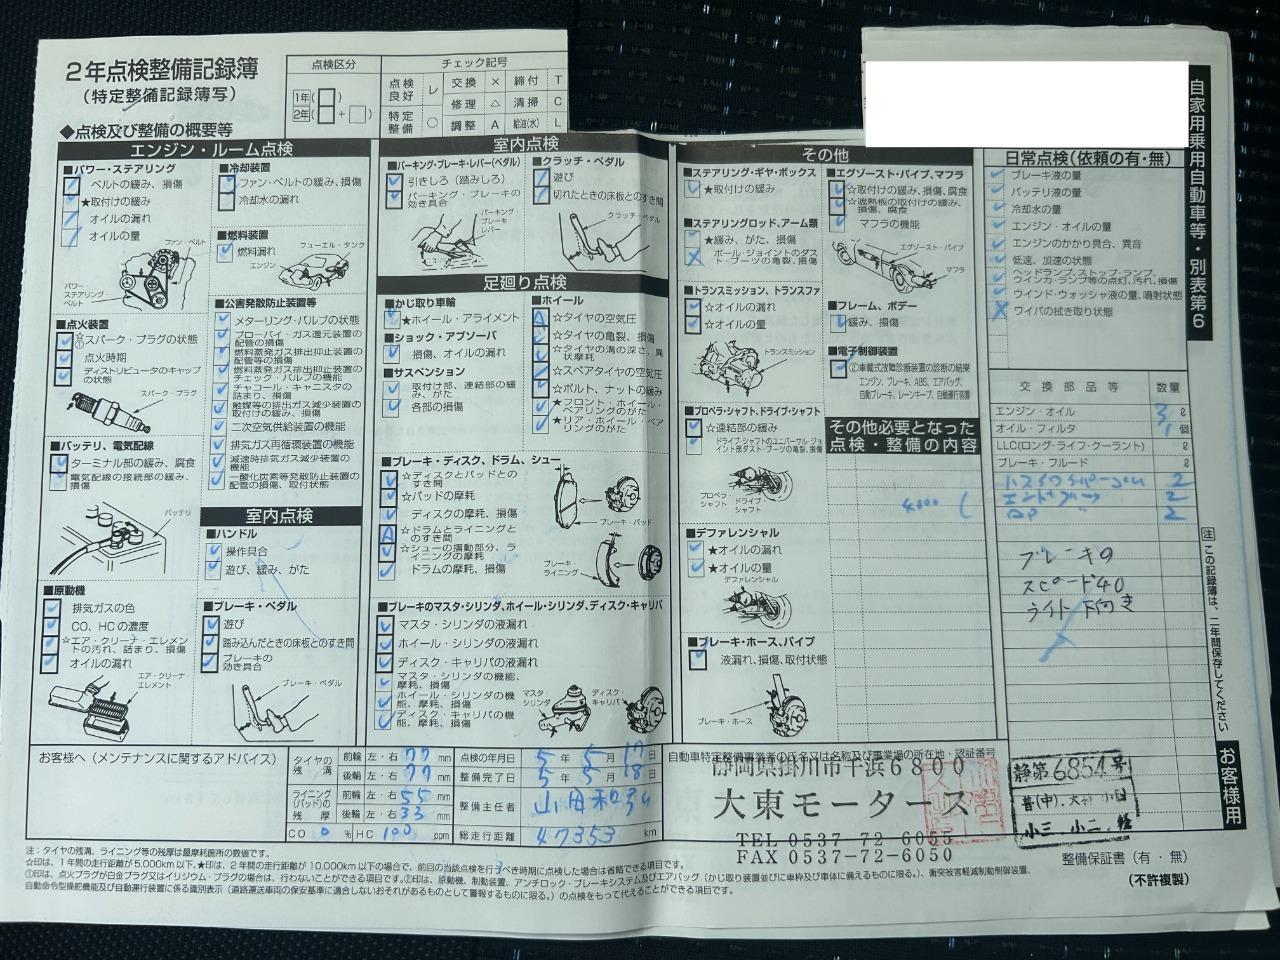 2年点検整備記録簿
(特定整備記録簿写)
点検区分
1年( )
2年( + )
チェック記号
点検良好 レ 交換 × 締付 T
修理 △ 清掃 C
特定整備 ○ 調整 A 給油(水) L
◆点検及び整備の概要等
エンジン・ルーム点検
■パワー・ステアリング
ベルトの緩み、損傷
★取付けの緩み
オイルの漏れ
オイルの量
ファン・ベルト
パワー・ステアリングベルト
■点火装置
☆①スパーク・プラグの状態
点火時期
ディストリビュータのキャップの状態
スパーク・プラグ
■バッテリ、電気配線
ターミナル部の緩み、腐食
電気配線の接続部の緩み、損傷
バッテリ
■原動機
排気ガスの色
CO、HCの濃度
☆エア・クリーナ・エレメントの汚れ、詰まり、損傷
オイルの漏れ
エア・クリーナ・エレメント
■冷却装置
ファン・ベルトの緩み、損傷
冷却水の漏れ
■燃料装置
燃料漏れ
フューエル・タンク
エンジン
■公害発散防止装置等
メターリング・バルブの状態
ブローバイ・ガス還元装置の配管の損傷
燃料蒸発ガス排出抑止装置の配管等の損傷
燃料蒸発ガス排出抑止装置のチェック・バルブの機能
チャコール・キャニスタの詰まり、損傷
触媒等の排出ガス減少装置の取付けの緩み、損傷
二次空気供給装置の機能
排気ガス再循環装置の機能
減速時排気ガス減少装置の機能
一酸化炭素等発散防止装置の配管の損傷、取付状態
室内点検
■ハンドル
操作具合
遊び、緩み、がた
■ブレーキ・ペダル
遊び
踏み込んだときの床板とのすき間
ブレーキの効き具合
ブレーキ・ペダル
室内点検
■パーキング・ブレーキ・レバー(ペダル)
引きしろ(踏みしろ)
パーキング・ブレーキの効き具合
パーキング・ブレーキ・レバー
■クラッチ・ペダル
遊び
切れたときの床板とのすき間
クラッチ・ペダル
足廻り点検
■かじ取り車輪
★ホイール・アライメント
■ショック・アブソーバ
損傷、オイルの漏れ
■サスペンション
取付け部、連結部の緩み、がた
各部の損傷
■ホイール
☆タイヤの空気圧
☆タイヤの亀裂、損傷
☆タイヤの溝の深さ、異状摩耗
☆スペアタイヤの空気圧
☆ボルト、ナットの緩み
★フロント・ホイール・ベアリングのがた
★リア・ホイール・ベアリングのがた
■ブレーキ・ディスク、ドラム、シュー
☆ディスクとパッドとのすき間
☆パッドの摩耗
ディスクの摩耗、損傷
☆ドラムとライニングとのすき間
☆シューの摺動部分、ライニングの摩耗
ドラムの摩耗、損傷
ブレーキ・パッド
ブレーキ・ライニング
■ブレーキのマスタ・シリンダ、ホイール・シリンダ、ディスク・キャリパ
マスタ・シリンダの液漏れ
ホイール・シリンダの液漏れ
ディスク・キャリパの液漏れ
マスタ・シリンダの機能、摩耗、損傷
ホイール・シリンダの機能、摩耗、損傷
ディスク・キャリパの機能、摩耗、損傷
マスタ・シリンダ
ディスク・キャリパ
その他
■ステアリング・ギヤ・ボックス
★取付けの緩み
■ステアリングロッド、アーム類
★緩み、がた、損傷
ボール・ジョイントのダスト・ブーツの亀裂、損傷
■トランスミッション、トランスファ
☆オイルの漏れ
☆オイルの量
トランスミッション
■プロペラ・シャフト、ドライブ・シャフト
☆連結部の緩み
ドライブ・シャフトのユニバーサル・ジョイント部ダスト・ブーツの亀裂、損傷
プロペラ・シャフト
ドライブ・シャフト
■デファレンシャル
★オイルの漏れ
★オイルの量
デファレンシャル
■ブレーキ・ホース、パイプ
液漏れ、損傷、取付状態
ブレーキ・ホース
■エグゾースト・パイプ、マフラ
☆取付けの緩み、損傷、腐食
☆遮熱板の取付けの緩み、損傷、腐食
マフラの機能
エグゾースト・パイプ
マフラ
■フレーム、ボデー
緩み、損傷
■電子制御装置
②車載式故障診断装置の診断の結果
エンジン、ブレーキ、ABS、エアバッグ、自動ブレーキ、レーンキープ、自動運行装置
その他必要となった点検・整備の内容
日常点検(依頼の有・無)
ブレーキ液の量
バッテリ液の量
冷却水の量
エンジン・オイルの量
エンジンのかかり具合、異音
低速、加速の状態
ヘッドランプ、ストップ・ランプ、ウインカ・ランプ等の点灯、汚れ、損傷
ウインド・ウォッシャ液の量、噴射状態
ワイパの拭き取り状態
交換部品等 数量
エンジン・オイル 3 ℓ
オイル・フィルタ 1 個
LLC(ロング・ライフ・クーラント) ℓ
ブレーキ・フルード ℓ
2
2
2
ブレーキの
スピード40
ライト下向き
自家用乗用自動車等・別表第6
注 この記録簿は、二年間保存してください
お客様用
お客様へ(メンテナンスに関するアドバイス)
タイヤの残溝 前輪 左・右 77 mm
後輪 左・右 77 mm
ライニング(パッド)の残厚 前輪 左・右 55 mm
後輪 左・右 33 mm
CO 0 % HC 100 ppm
点検の年月日 5年 5月 17日
整備完了日 5年 5月 18日
整備主任者
総走行距離 47353 km
自動車特定整備事業者の氏名又は名称及び事業場の所在地・認証番号
静岡県掛川市千浜6800
大東モータース
TEL 0537-72-6055
FAX 0537-72-6050
静第6854号
普(中)、大特 小四
小三、小二、軽
整備保証書(有・無)
(不許複製)
注:タイヤの残溝、ライニング等の残厚は最摩耗箇所の数値です。
☆印は、1年間の走行距離が5,000km以下、★印は、2年間の走行距離が10,000km以下の場合で、前回の当該点検を行うべき時期に点検した場合は省略できる項目です。
①印は、点火プラグが白金プラグ又はイリジウム・プラグの場合は、行わないことができる項目です。②印は、原動機、制動装置、アンチロック・ブレーキシステム及びエアバッグ(かじ取り装置並びに車枠及び車体に備えるものに限る。)、衝突被害軽減制動制御装置、
自動命令型操舵機能及び自動運行装置に係る識別表示(道路運送車両の保安基準に適合しないおそれがあるものとして警報するものに限る。)の点検をもって代えることができる項目です。